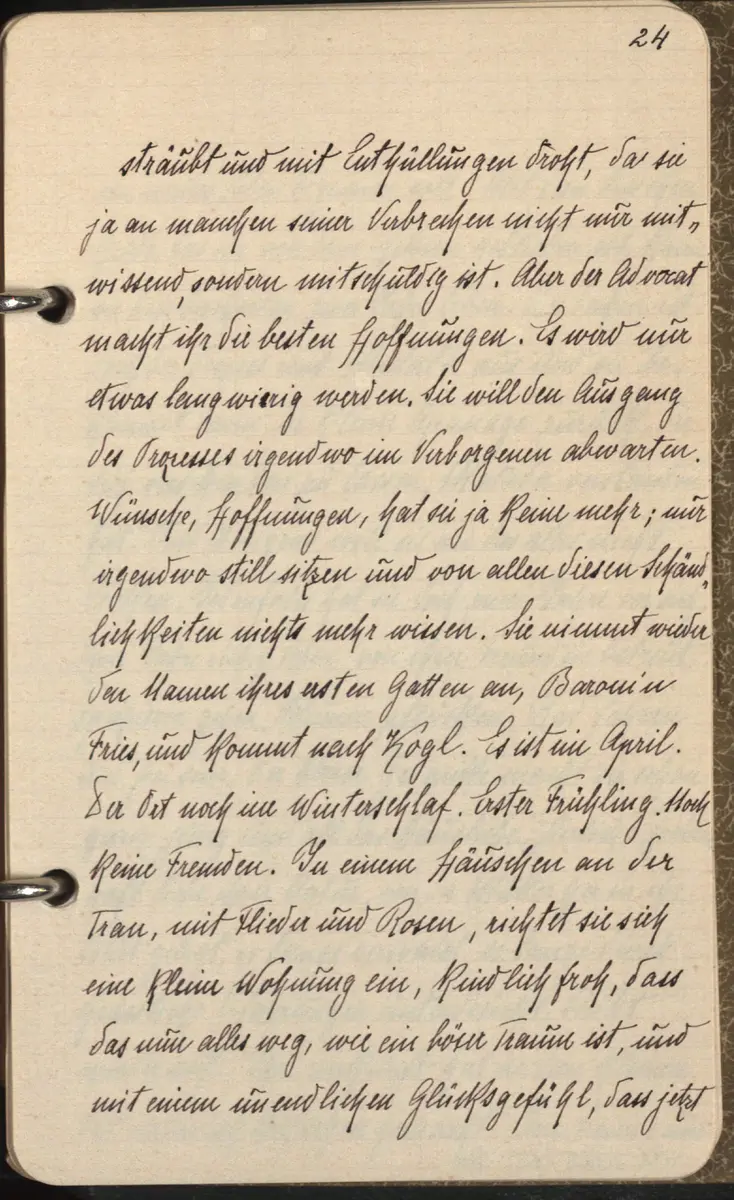 24
sträubt und mit Enthüllungen droht, da sie
ja an manchen seiner Verbrechen nicht nur mit„
wissend, sondern mitschuldig ist. Aber der Advocat
macht ihr die besten Hoffnungen. Es wird nur
etwas langwierig werden. Sie will den Ausgang
des Prozesses irgendwo im Verborgenen abwarten.
Wünsche, Hoffnungen, hat sie ja keine mehr; nur
irgendwo still sitzen und von allen diesen Schänd„
lichkeiten nichts mehr wissen. Sie nimmt wieder
den Namen ihres ersten Gatten an, Baronin
Fries, und kommt nach Kogl. Es ist im April.
Der Ort noch im Winterschlaf. Erster Frühling. Noch
keine Fremden. In einem Häuschen an der
Traun, mit Flieder und Rosen, richtet sie sich
eine kleine Wohnung ein, kindlich froh, dass
das nun alles weg, wie ein böser Traum ist, und
mit einem unendlichen Glücksgefühl, dass jetzt